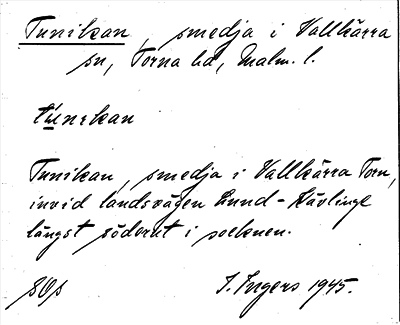 Tunikan, smedja i Vallkärra
sn, Torna hd, Malm. l.
túnikan
Tunikan, smedja i Vallkärra Torn,
invid landsvägen Lund - Kävlinge
längst söderut i socknen.
I. Ingers 1945.